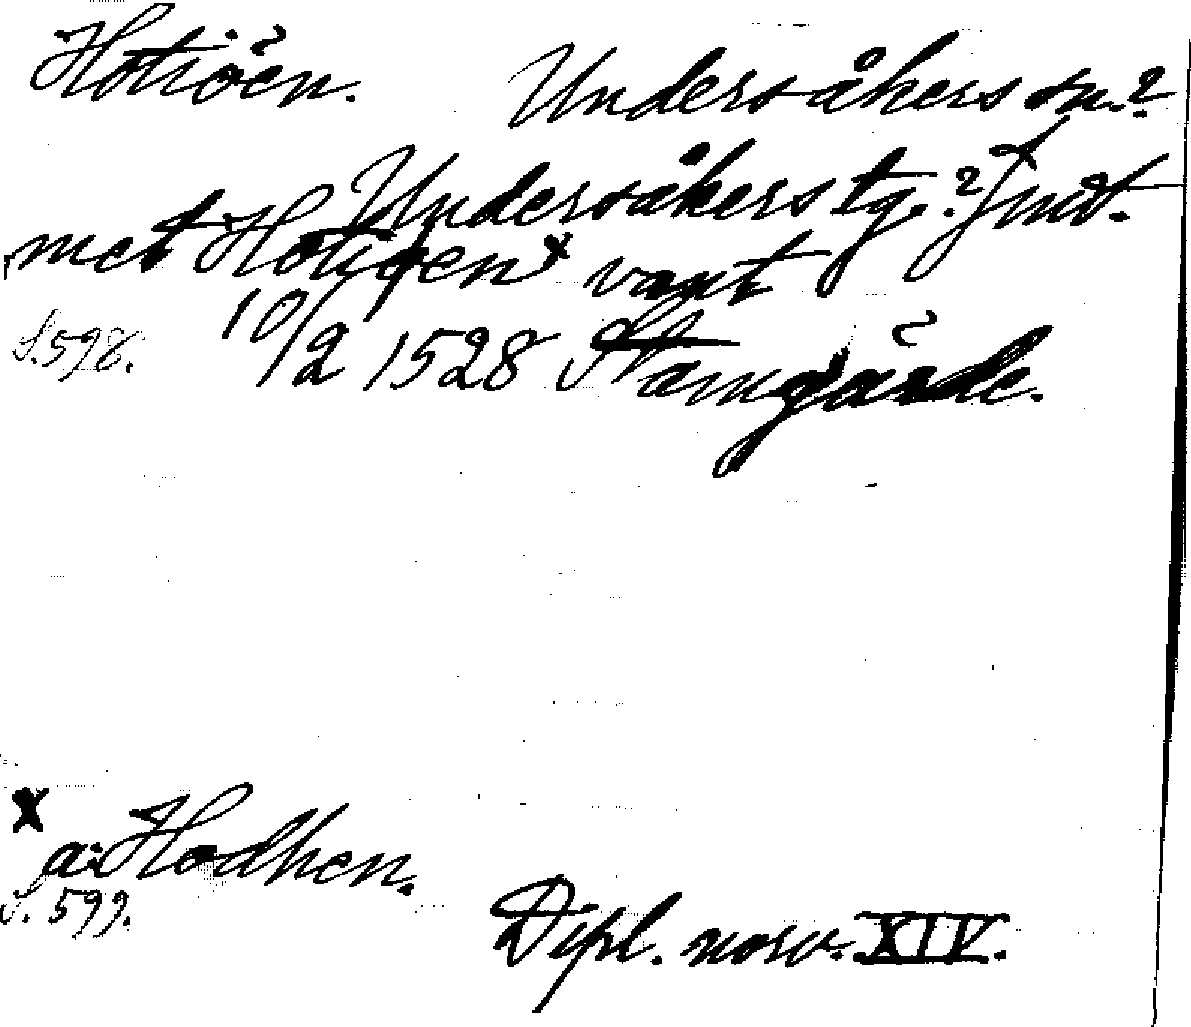 Hotiöen. Undersåkers sn.?
Undersåkers tg.? Jmtl.
met Hotigen x vart
S. 598. 10/2 1528 Stamgårde.
x
a: Hodhen.
S. 599.
Dipl. norv. XIV.